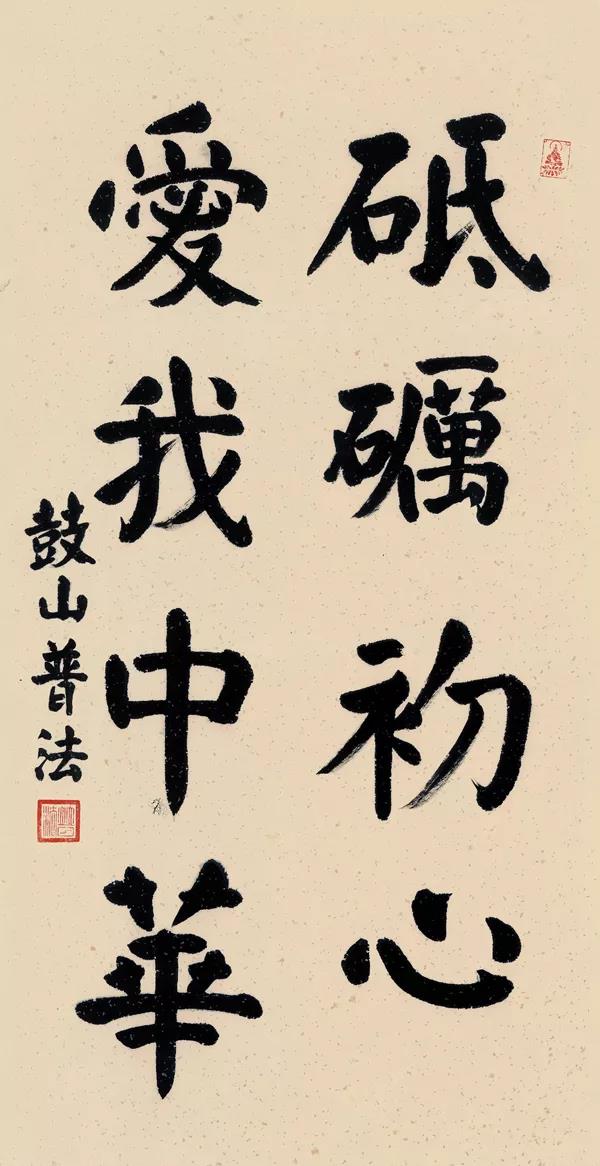 砥礪初心
愛我中華
鼓山普法